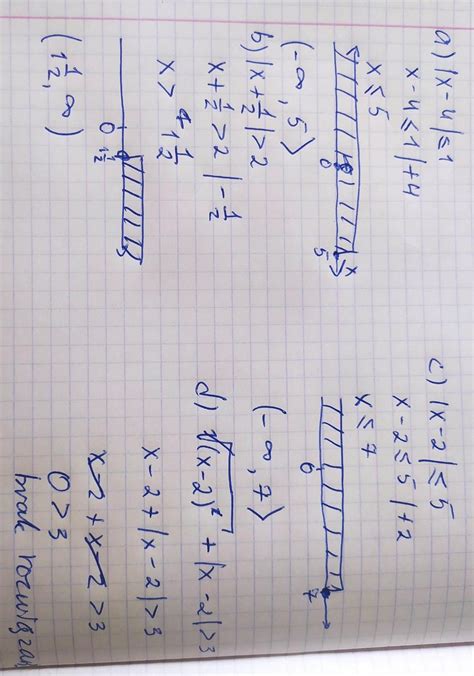 a) |x-4| ≤ 1
x-4 ≤ 1 |+4
x ≤ 5
0 5 x
(-∞, 5>
b) |x+½| > 2
x+½ > 2 |-½
x > 1½
0 1½
(1½, ∞)
c) |x-2| ≤ 5
x-2 ≤ 5 |+2
x ≤ 7
0 7
(-∞, 7>
d) √(x-2)² + |x-2| > 3
x-2 + |x-2| > 3
x-2 + x-2 > 3
0 > 3
brak rozwiązań